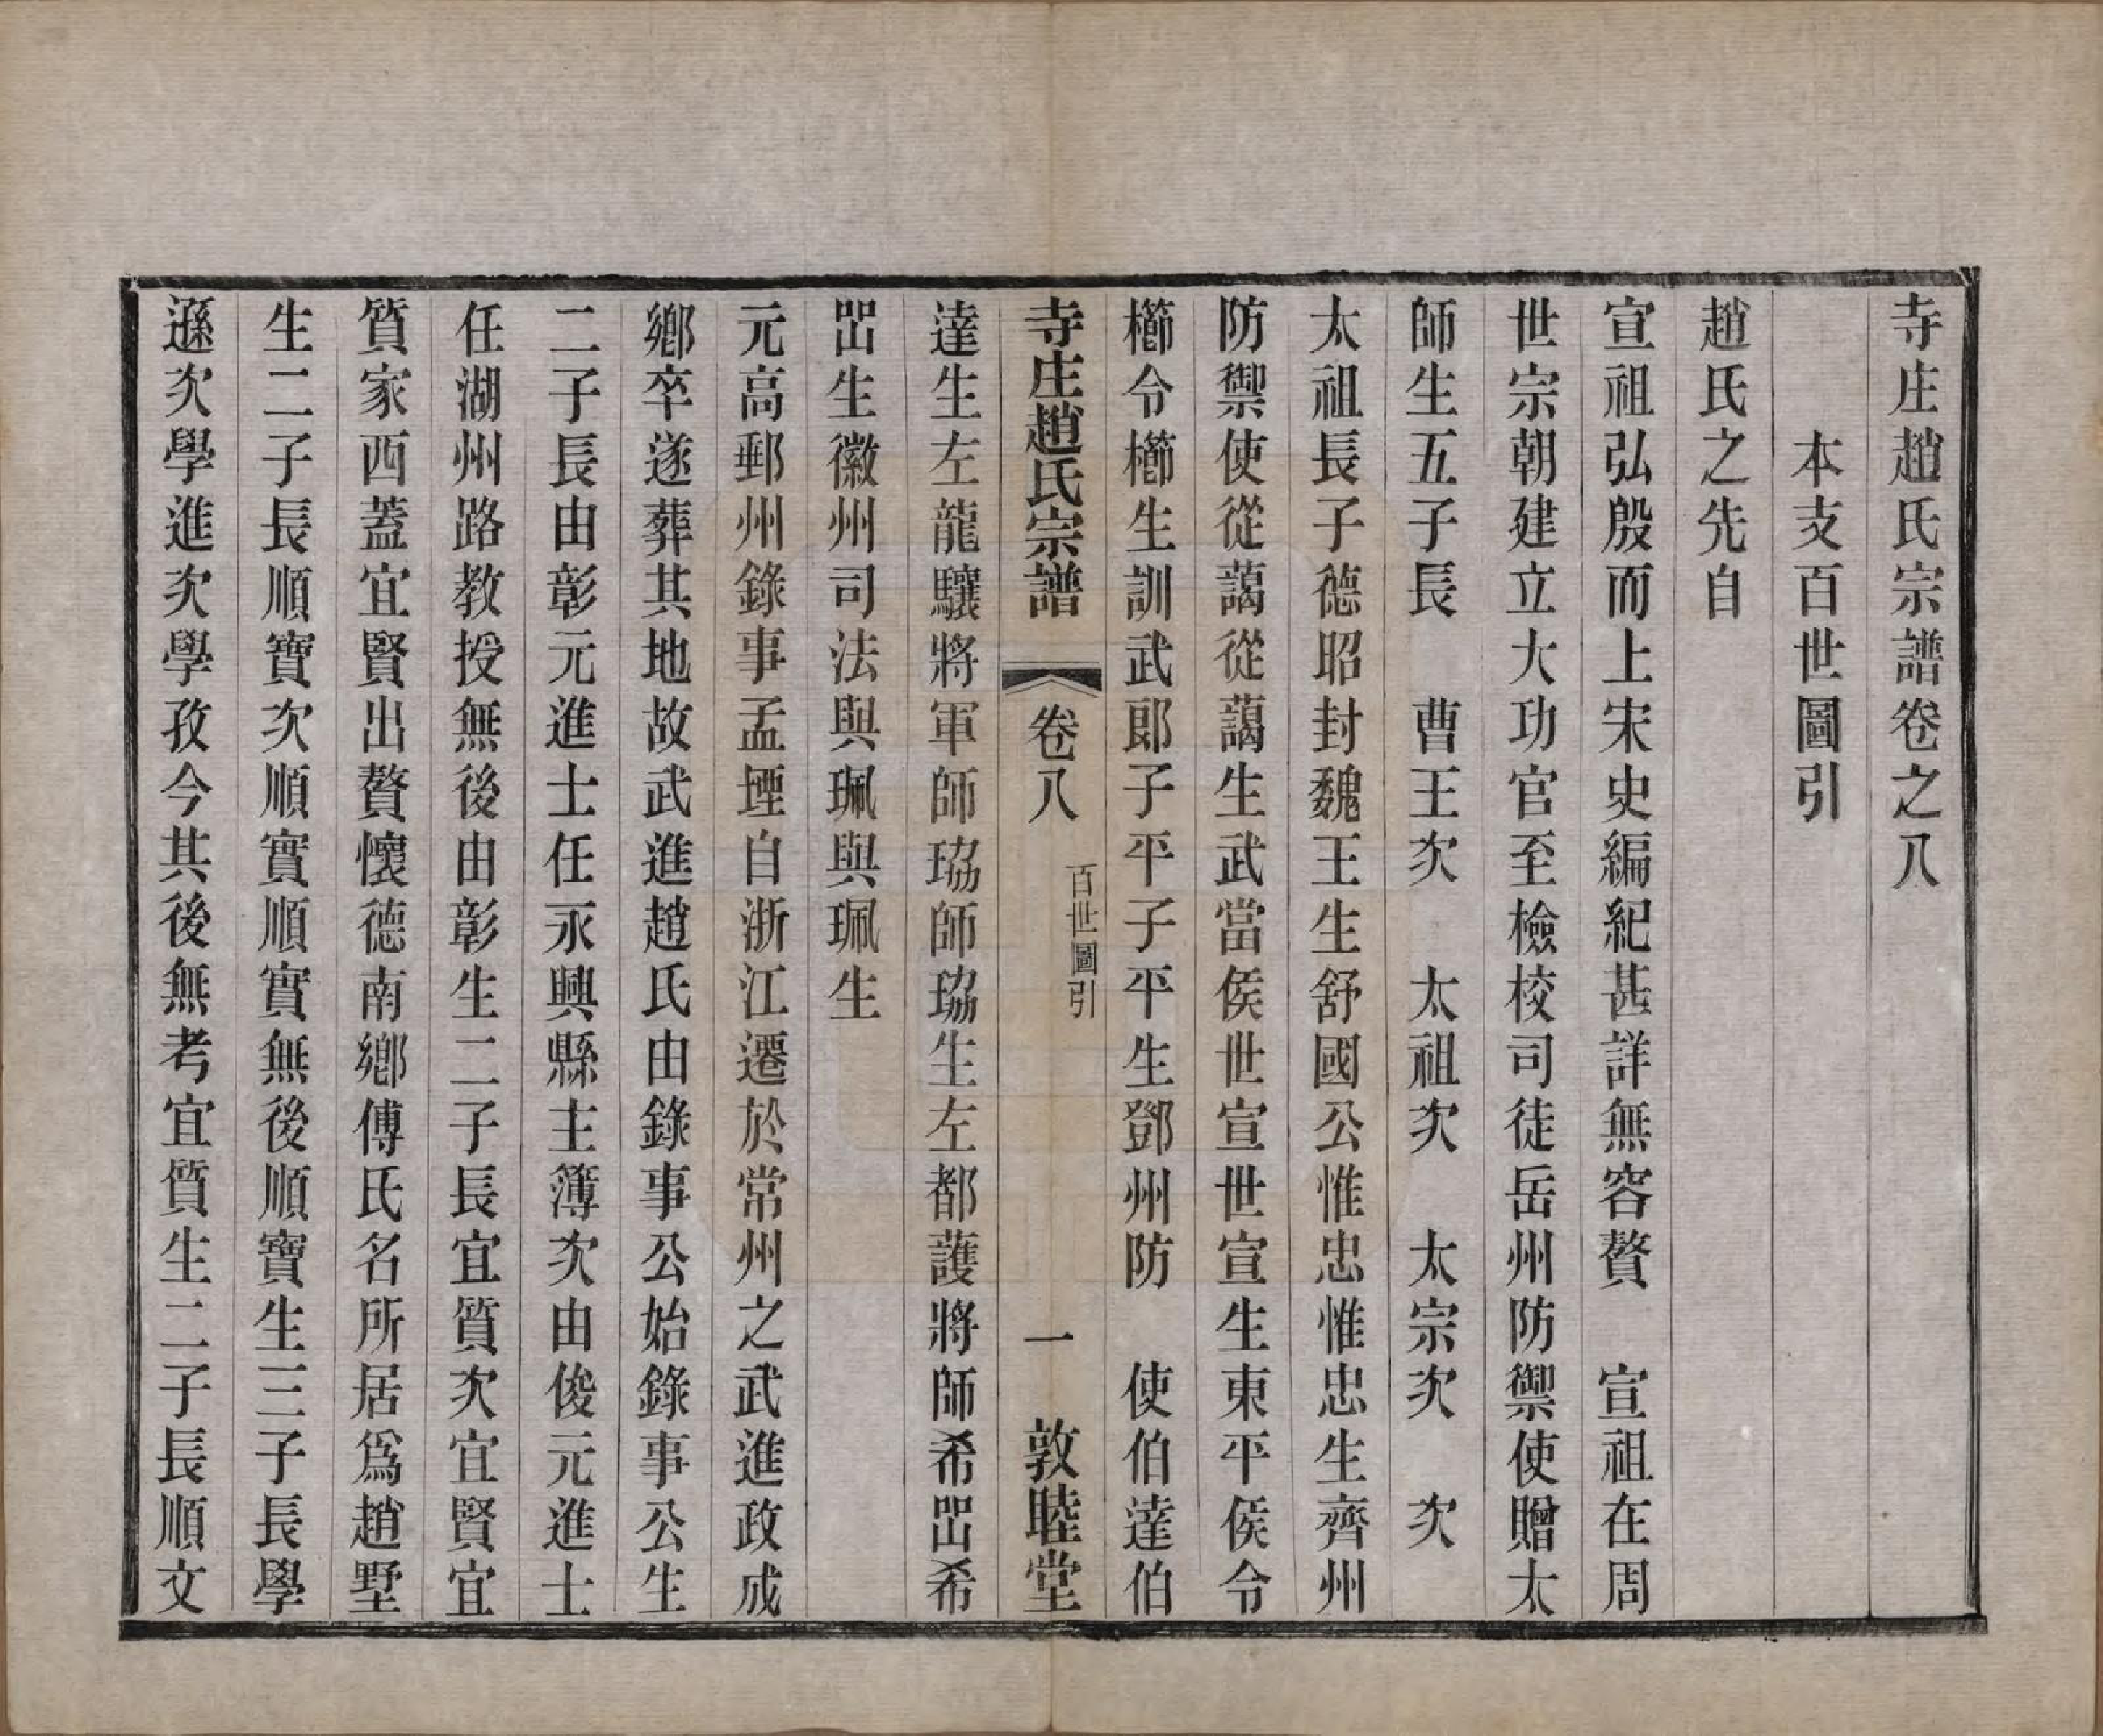 寺庄趙氏宗譜卷之八
本支百世圖引
趙氏之先自
宣祖弘殷而上宋史編紀甚詳無容贅　宣祖在周
世宗朝建立大功官至檢校司徒岳州防禦使贈太
師生五子長　曹王次　太祖次　太宗次　次
太祖長子德昭封魏王生舒國公惟忠惟忠生齊州
防禦使從藹從藹生武當侯世宣世宣生東平侯令
櫛令櫛生訓武郎子平子平生鄧州防　使伯達伯
寺庄趙氏宗譜
卷八
百世圖引
一
敦睦堂
達生左龍驤將軍師珕師珕生左都護將師希岊希
岊生徽州司法與珮與珮生
元高郵州錄事孟堙自浙江遷於常州之武進政成
鄉卒遂葬其地故武進趙氏由錄事公始錄事公生
二子長由彰元進士任永興縣主簿次由俊元進士
任湖州路教授無後由彰生二子長宜質次宜賢宜
質家西蓋宜賢出贅懷德南鄉傅氏名所居爲趙墅
生二子長順寶次順實順實無後順寶生三子長學
遜次學進次學孜今其後無考宜質生二子長順文